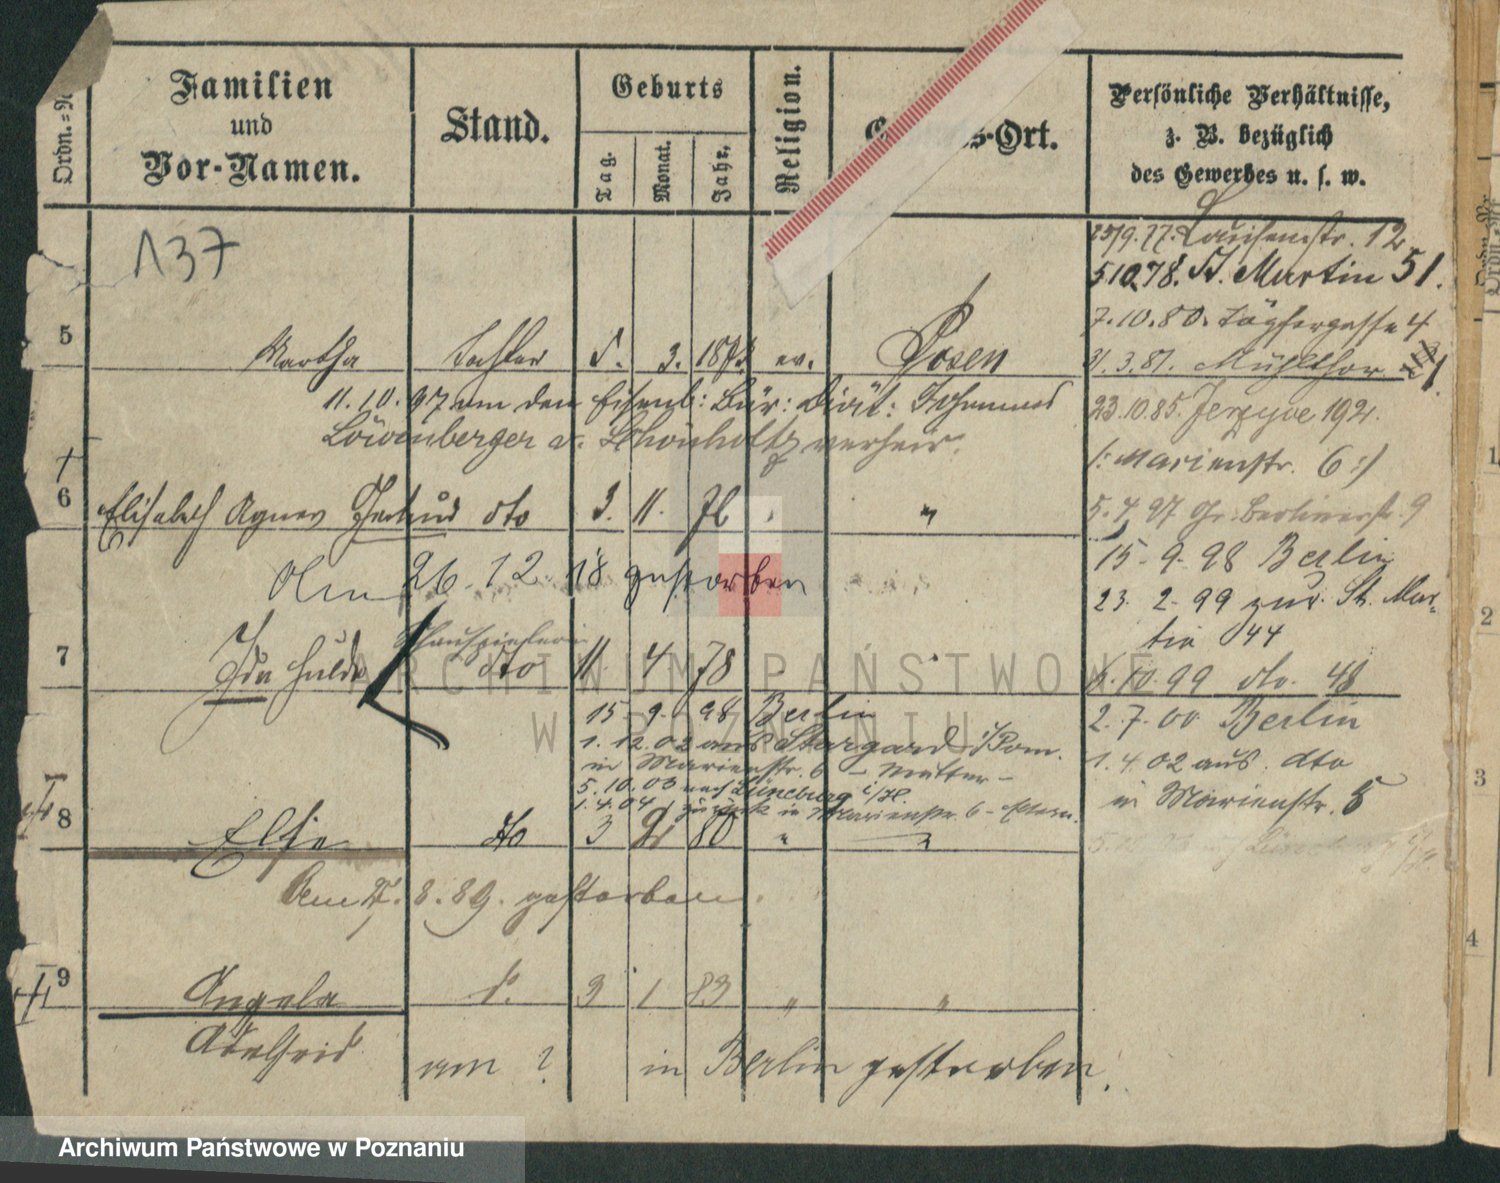 Ordn.=N
Familien
und
Vor-Namen.
Stand.
Geburts
Tag.
Monat.
Jahr,
Religion.
s-Ort.
Persönliche Verhältnisse,
z. B. bezüglich
des Gewerbes u. s. w.
137
25/9.77. Louisenstr. 12
5.10.78. St. Martin 51.
7.10.80. 4
31.3.81. Mühlthor
5 Martha Tochter 5. 3. ev. Posen
11.10.97 an den Eisenb: Bür: Diät: Johannes
Löwenberger v. Schönholtz verheir.
23.10.85. Jerzyce 192.
/: Marienstr. 6 :/
6 Elisabeth Agnes Gertrud dto 3. 11. 76 "
5.7.97 Gr. Berlinerstr. 9
15.9.98 Berlin
Am 26.12.18 gestorben
23.2.99 zur. St. Mar-
tin 44
Schauspielerin
7 Ida Hulda dto 11 4 78
10.99 dto. 48
15.9.98 Berlin
1.12.02 aus Stargard i/Pom.
in Marienstr. 6 - Mutter -
5.10.03 nach Lüneburg i/H.
1.4.04 zurück in Marienstr. 6 - Eltern.
2.7.00 Berlin
1.4.02 aus dto
in Marienstr. 6
8 Else dto 3 80 " "
Am 8.89. gestorben.
9 Angela d. 3 1 83 " "
Adelheid
am ? in Berlin gestorben.
ARCHIWUM PAŃSTWOWE
W POZNANIU
1
2
3
4
Archiwum Państwowe w Poznaniu